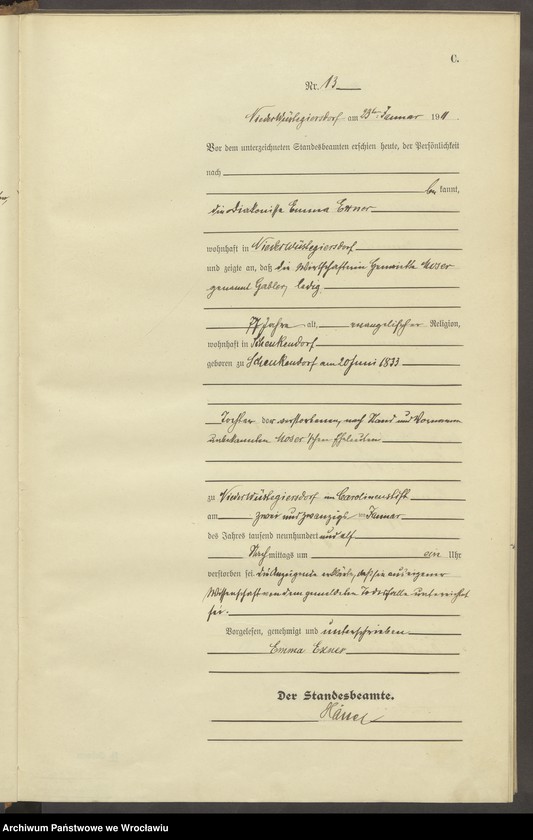 C.
Nr. 13
Niederwüstegiersdorf am 23ten Januar 1911.
Vor dem unterzeichneten Standesbeamten erschien heute, der Persönlichkeit
nach
be kannt,
die Diakonisse Emma Exner
wohnhaft in Niederwüstegiersdorf
und zeigte an, daß die Wirtschafterin Henriette Moser
genannt Gabler, ledig
77 Jahre alt, evangelischer Religion,
wohnhaft in Schenkendorf
geboren zu Schenkendorf am 20 Juni 1833
Tochter der verstorbenen, nach Stand und Vornamen
unbekannten Moser'schen Eheleuten
zu Niederwüstegiersdorf im Carolinenstift
am zwei und zwanzigsten Januar
des Jahres tausend neunhundert und elf
Nach mittags um ein Uhr
verstorben sei. Die Anzeigende erklärte, daß sie aus eigener
Wissenschaft von dem gemeldeten Todesfalle unterrichtet
sei.
Vorgelesen, genehmigt und unterschrieben
Emma Exner
Der Standesbeamte.
Archiwum Państwowe we Wrocławiu